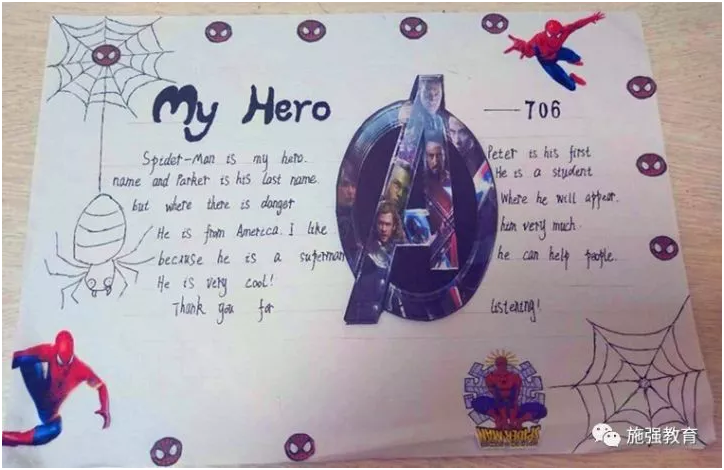 My Hero ——706
Spider-Man is my hero. Peter is his first
name and Parker is his last name. He is a student
but where there is danger where he will appear.
He is from America. I like him very much
because he is a superman he can help people.
He is very cool!
Thank you for listening!
SPIDER-MAN
施强教育